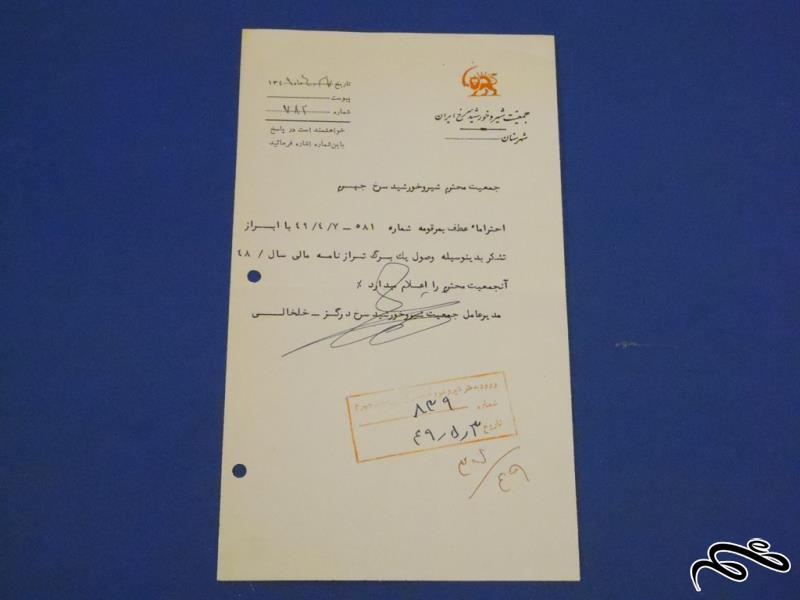 جمعیت شیر و خورشید سرخ ایران
شهرستان
تاریخ ۱۳۴
پیوست
شماره ۷۸۲
خواهشمند است در پاسخ
باین شماره اشاره فرمائید
جمعیت محترم شیروخورشید سرخ جهرم
احتراماً عطف بمرقومه شماره ۵۸۱ – ۴۹/۴/۷ با ابراز
تشکر بدینوسیله وصول یک برگ ترازنامه مالی سال / ۴۸
آنجمعیت محترم را اعلام میدارد ٪
مدیرعامل جمعیت شیروخورشید سرخ درگز – خلخالی
شماره ۸۳۹
تاریخ ۴۹/۵/۳